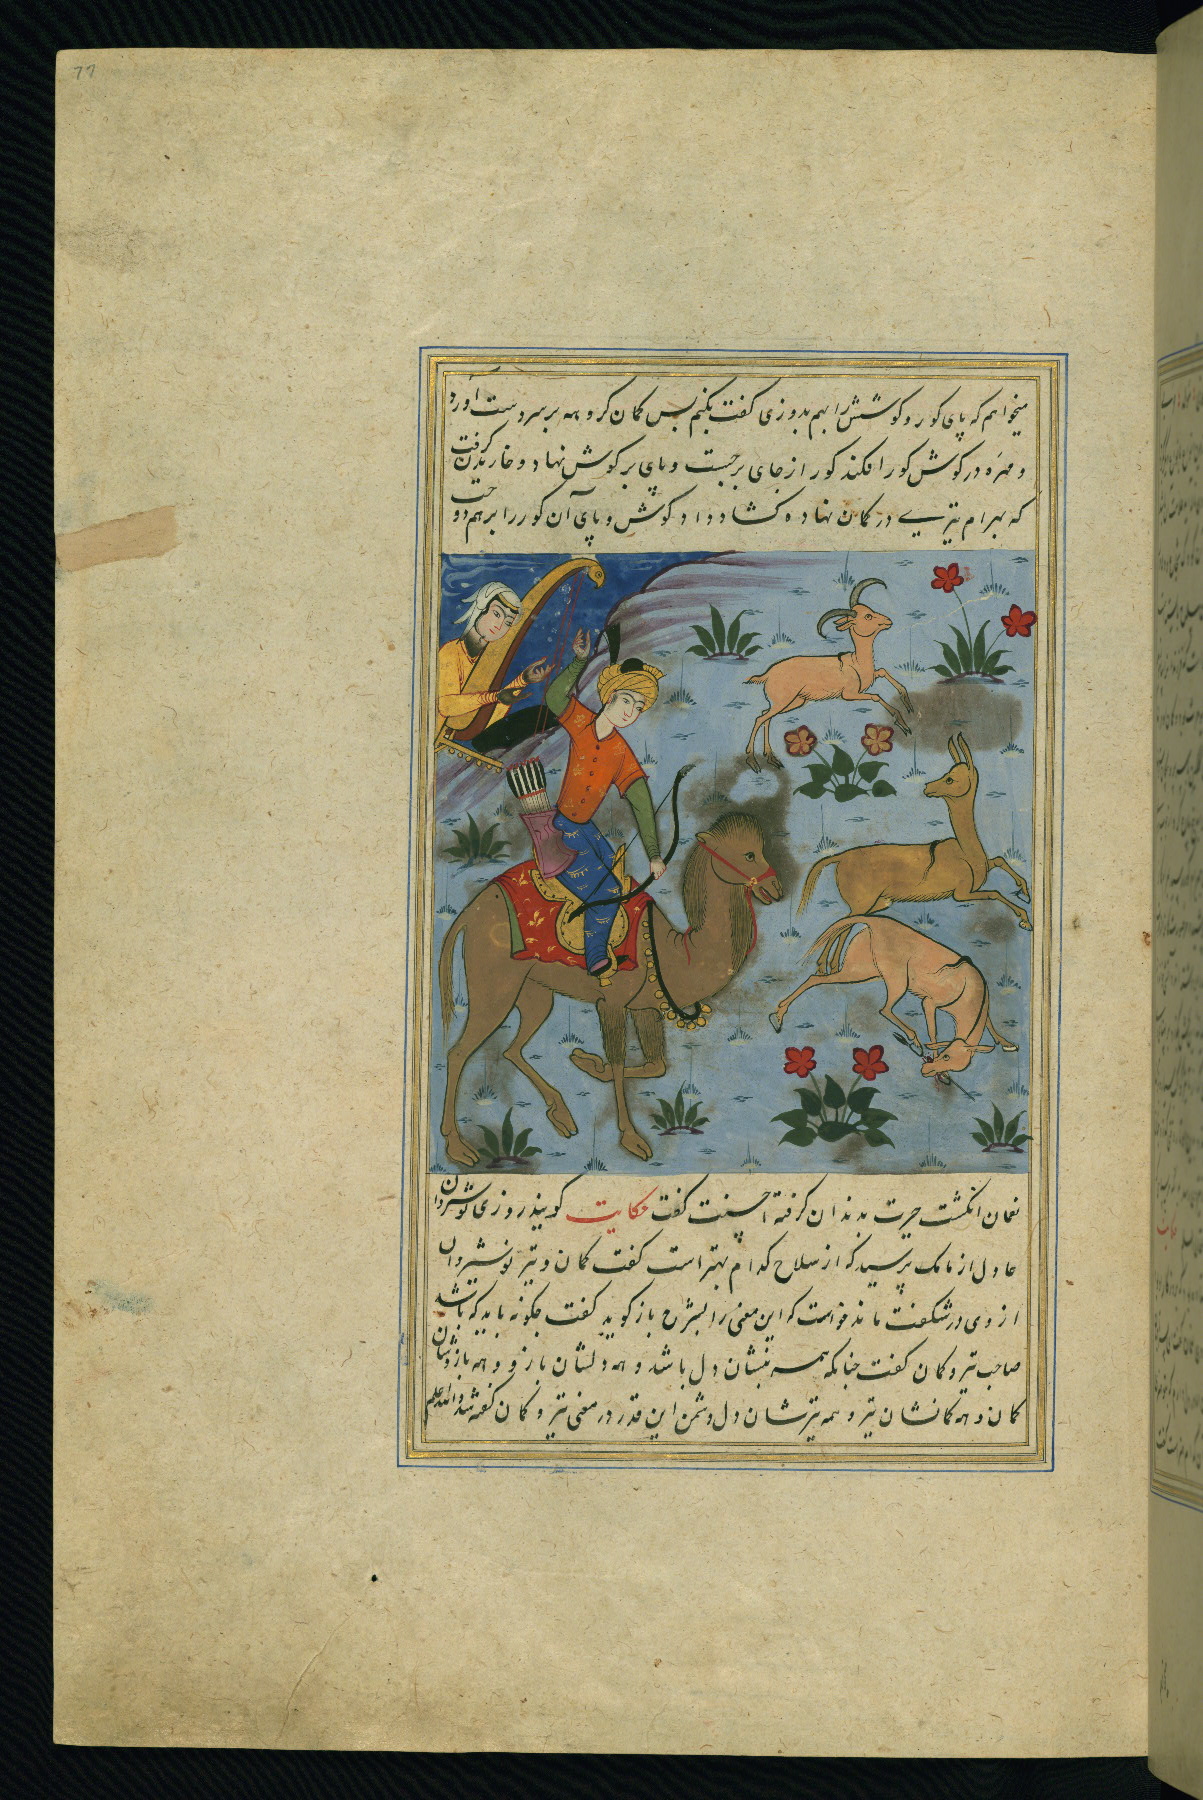 77
میخواهم که پای کور و کوشش را بهم بدوزی کفت بکنم بس کمان کروهه برسر دست آورد
و مهره در کوش کور افکند کور از جای برجست و پای بر کوش نهاد و خاریدن کرفت
که بهرام تیری در کمان نهاده کشاد داد کوش و پای آن کور را برهم دوخت
نعمان انکشت حیرت بدندان کرفته احسنت کفت حکایت کویند روزی نوشروان
عادل از بابک پرسید که از سلاح کدام بهتر است کفت کمان و تیر نوشیروان
از وی در شکفت ماند خواست که این معنی را بشرح باز کوید کفت چکونه باید که باشد
صاحب تیر و کمان کفت چنانکه همه تنشان دل باشد و همه دلشان بازو و همه بازوشان
کمان و همه کمانشان تیر و همه تیرشان دل دشمن این قدر در معنی تیر و کمان کفته شد والله اعلم